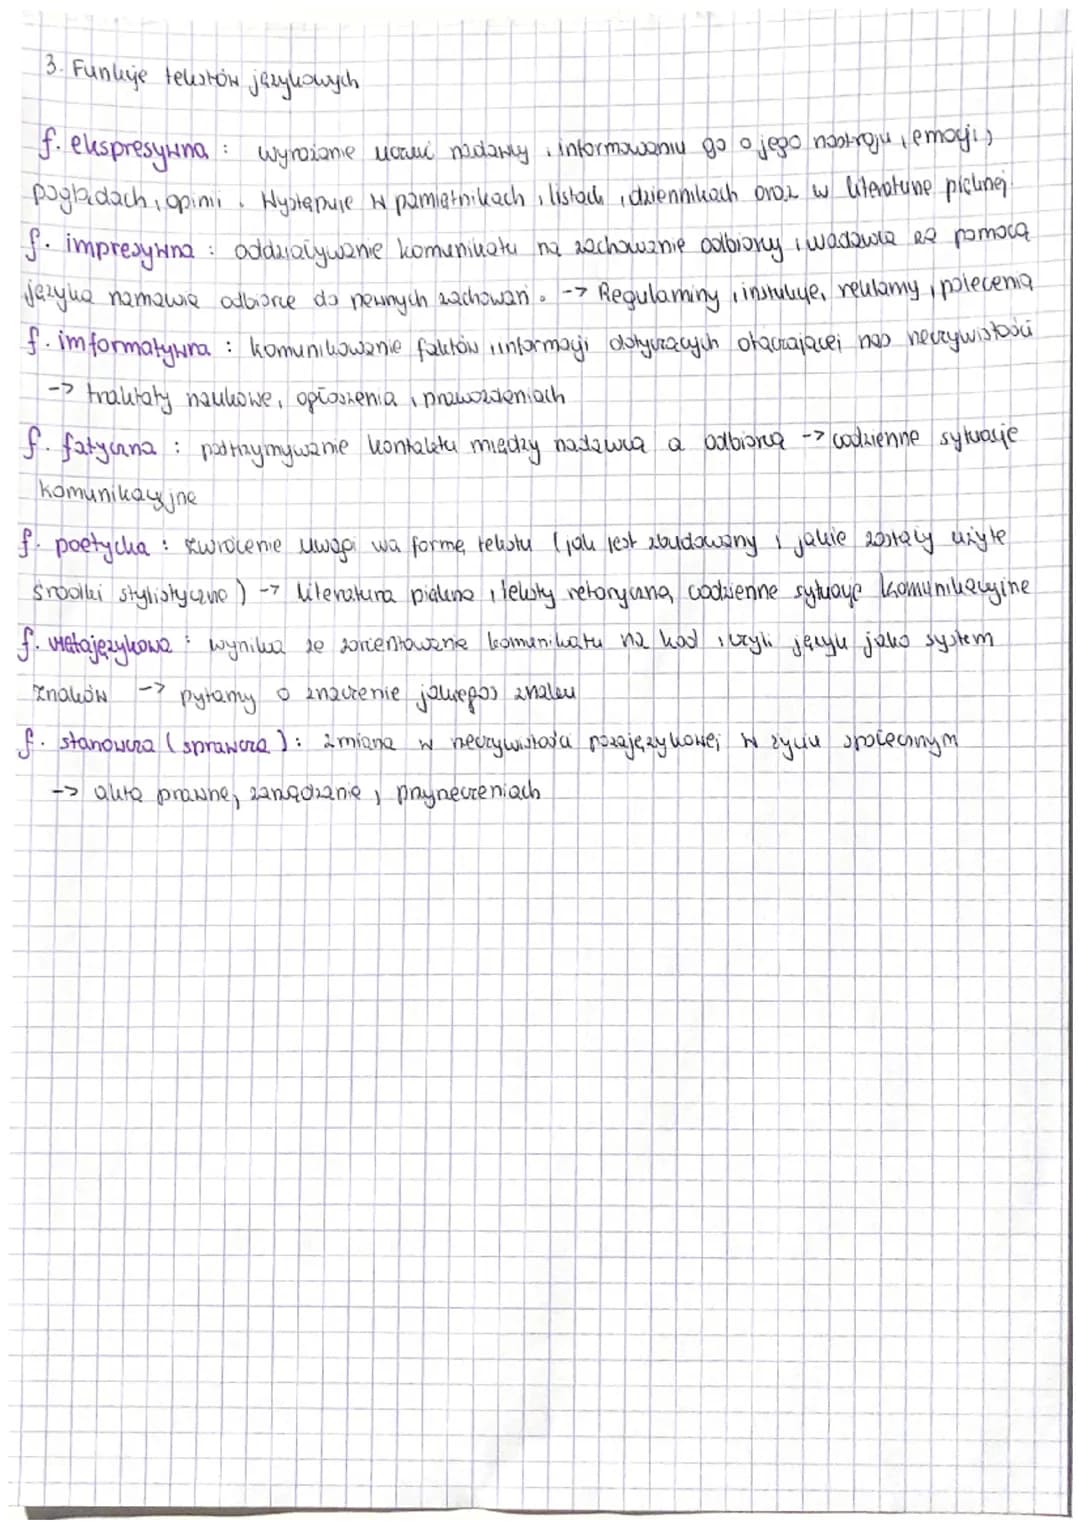 3. Funkcje tekstów językowych
f. ekspresywna : wyrażanie uczuć nadawcy , informowaniu go o jego nastroju , emocji ,
poglądach , opinii . Występuje w pamiętnikach , listach , dziennikach oraz w literaturze pięknej.
f. impresywna : oddziaływanie komunikatu na zachowanie odbiorcy , nadawca za pomocą
języka namawia odbiorcę do pewnych zachowań . -> Regulaminy , instrukcje, reklamy , polecenia
f. imformatywna : komunikowanie faktów , informacji dotyczących otaczającej nas rzeczywistości
-> traktaty naukowe, ogłoszenia , prawozdeniach
f. fatyczna : podtrzymywanie kontaktu między nadawcą a odbiorcą -> codzienne sytuacje
komunikacyjne
f. poetycka : zwrócenie uwagi na formę tekstu ( jak jest zbudowany i jakie zostały użyte
środki stylistyczne ) -> literatura piękna , teksty retoryczne, codzienne sytuacje komunikacyjne
f. metajęzykowa : wynika ze zorientowania komunikatu na kod , czyli język jako system
znaków -> pytamy o znaczenie jakiegoś znaku
f. stanowcza ( sprawcza ) : zmiana w rzeczywistości pozajęzykowej w życiu społecznym
-> akta prawne, zarządzanie , przyrzeczeniach